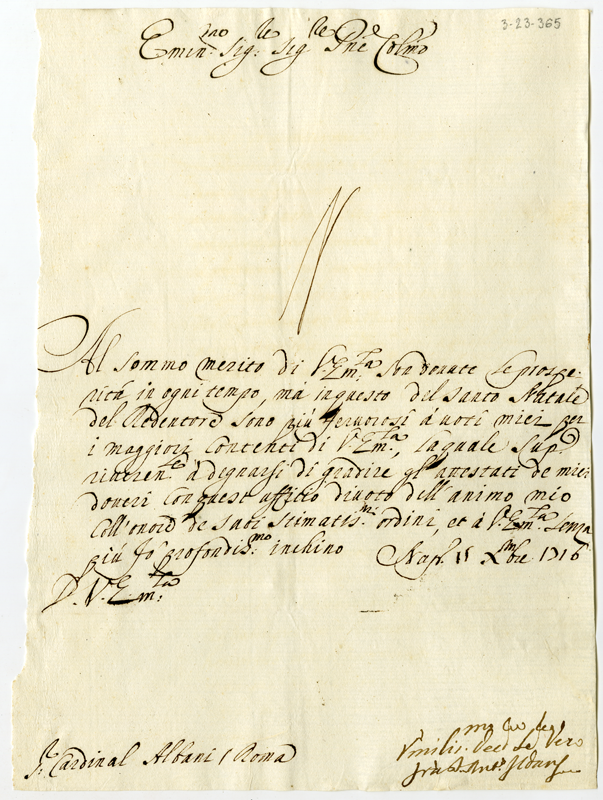 3-23-365
Emin.mo Sig.re Sig.re Pne Colmo
Al sommo merito di V. Em.za son dovute le prospe-
rità in ogni tempo, ma in questo del Santo Natale
del Redentore sono più fervorosi i voti miei per
i maggiori contenti di V. Em.za, la quale sup.co
riveren.te à degnarsi di gradire gl'attestati de miei
doveri con quest uffitio divoto dell'animo mio
coll'onore de suoi stimatis.mi ordini, et à V. Em.za senza
più fo profondis.mo inchino Nap. 15 Xmbre 1716
D. V. Em.za
S.r Cardinal Albani / Roma